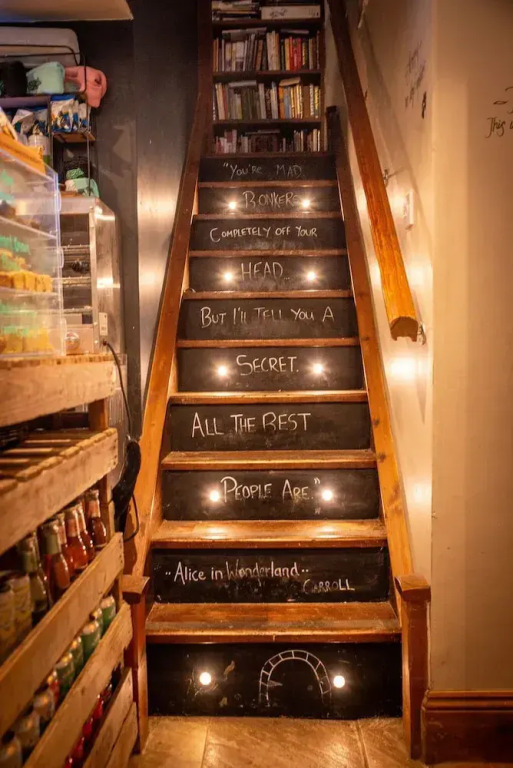 "You're Mad
Bonkers
Completely off your
Head...
But I'll Tell You A
Secret.
All The Best
People Are."
"Alice in Wonderland..
Carroll
This